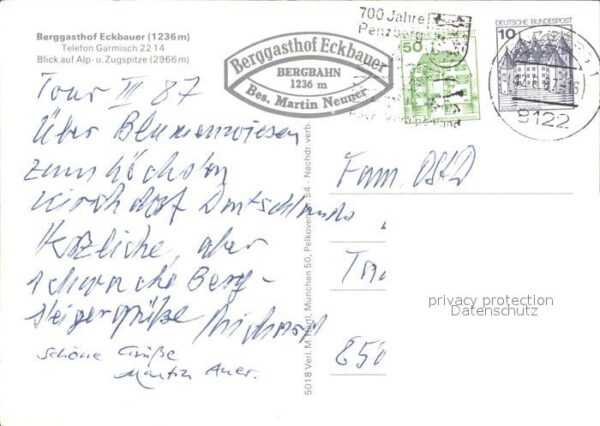 Berggasthof Eckbauer (1236 m)
Telefon Garmisch 22 14
Blick auf Alp- u. Zugspitze (2966 m)
Berggasthof Eckbauer
BERGBAHN
1236 m
Bes. Martin Neuner
700 Jahre
Penzberg
50
DEUTSCHE BUNDESPOST
10
8122
Tour III 87
Über Blumenwiesen
zum höchsten
Kirchdorf Deutschlands
Herzliche, aber
schwache Berg-
steigergrüße
schöne Grüße
Martin Auer.
Fam. OStD
850
5018 Verl. M. München 50, Nachdr. verb.
privacy protection
Datenschutz